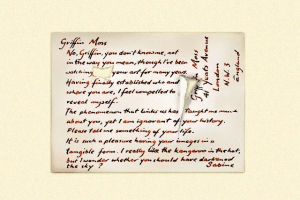 Griffin Moss
No, Griffin, you don't know me, not
in the way you mean, though I've been
watching your art for many years.
Having finally established who and
where you are, I feel compelled to
reveal myself.
The phenomenon that links us has taught me much
about you, yet I am ignorant of your history.
Please tell me something of your life.
It is such a pleasure having your images in a
tangible form. I really like the kangaroo in the hat,
but I wonder whether you should have darkened
the sky?
Sabine
Griffin Moss
41 Yeats Avenue
London
N.W.3
England